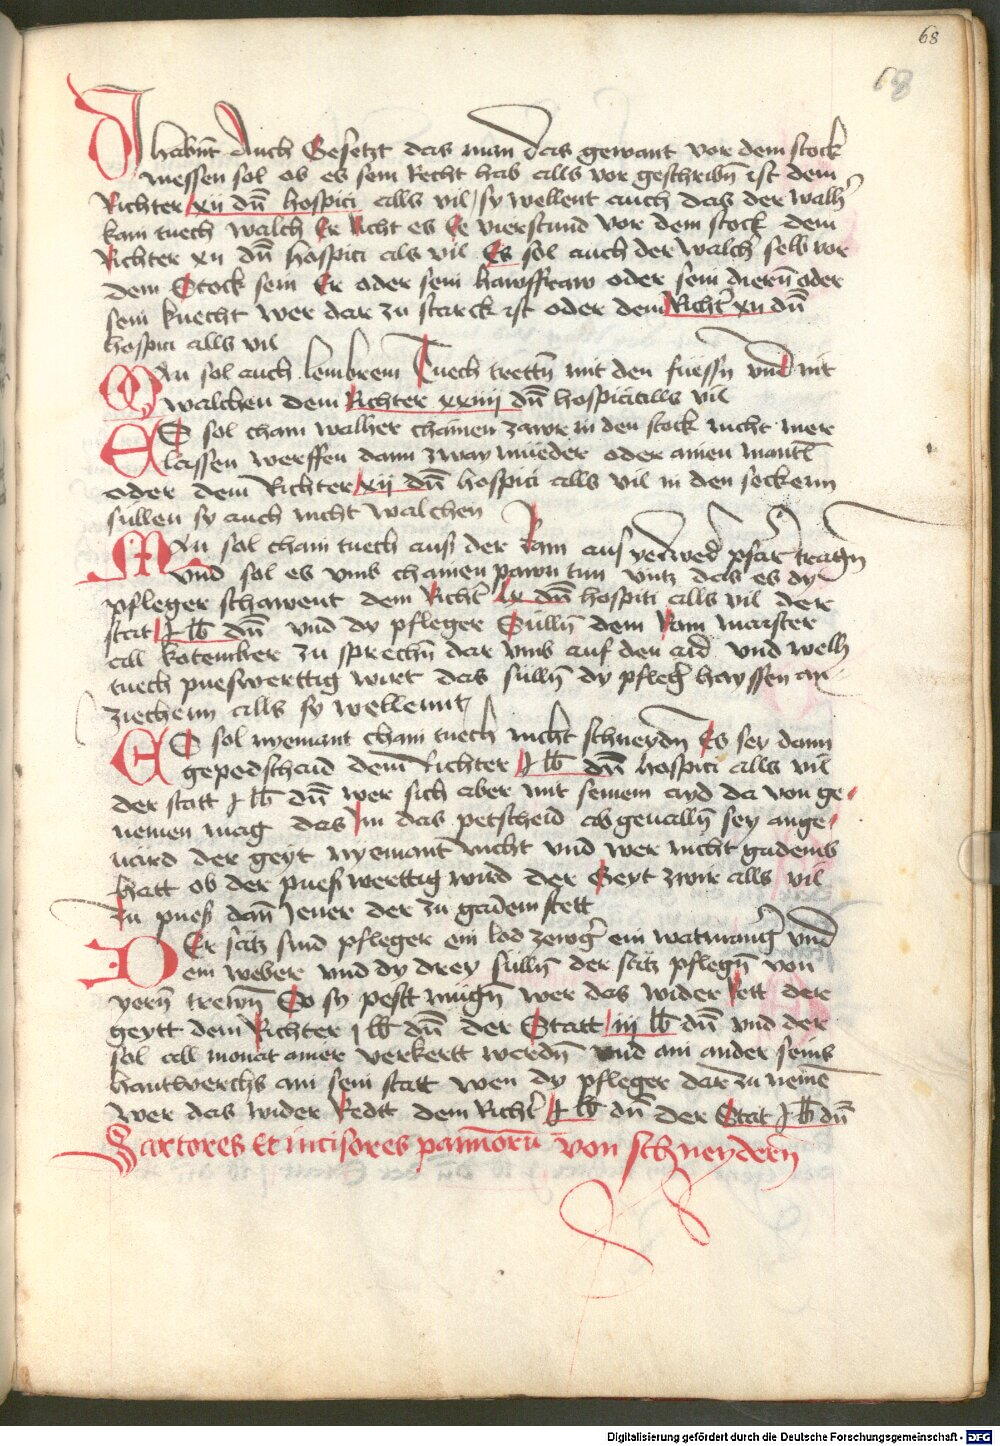 68
68
habnt Auch Gesetzt das man das gewant vor dem stock
messen sol ob es sein Recht hab alls vor geschribn ist dem
Richter xij dn hospici alls vil sy wellent auch das der walher
kain tuech walch Er Richt es Ee vierstund vor dem stock dem
Richter xij dn hospici als vil Es sol auch der walch selb vor
dem Stock sein Er oder sein hawsfraw oder sein diern oder
sein knecht wer dar zu starck ist oder dem Richter xij dn
hospici alls vil
Man sol auch lembrein Tuech trettn mit den fuessn und nit
walchen dem Richter xxiiij dn hospici alls vil
Es sol chain walher chainen zawr in den stock nicht mer
lassen werffen dann zway mueder oder ainen mantl
oder dem Richter xij dn hospici alls vil in den seckenn
sullen sy auch nicht walchen
Man sol chain tuech aus der Ram auf yedweder pfar tragn
Und sol es umb chainen pawn tun untz das es dy
pfleger schawent dem Richter lx dn hospici alls vil der
stat j lb dn und dy pfleger Sulln dem Ram maister
all kotember zu sprechn dar umb auf den aid Und welh
tuech pueswerttig wirt das sulln dy pfleger hayssen an
ziechenn alls sy wellennt
Es sol nyemant chain tuech nicht schneydn Es sey dann
gepedschaid dem Richter j lb dn hospici alls vil
der statt j lb dn wer sich aber mit seinem ayd da von ge
nemen mag das Im das petscheid abgevalln sey ange
naird der geyt nyemant nicht und wer nicht gadems
hatt ob der pueswerttig wird der Geyt zwir alls vil
zu pues dan Jener der zu gadem stett
Der sätz sind pfleger ein lod zewger ein watmanger und
ein weber und dy drey sulln der sätz pflegn von
yern trewn So sy pestt mugn wer das wider Rett der
geytt dem Richter j lb dn der Statt iij lb dn und der
sol all monat ainer verkertt werdn und ain ander seins
hantwerchs an sein statt wen dy pfleger dar zu neme
wer das wider Redtt dem Richter j lb dn der Stat j lb dn
Sartores et incisores pannorum von schneydern
Digitalisierung gefördert durch die Deutsche Forschungsgemeinschaft - DFG